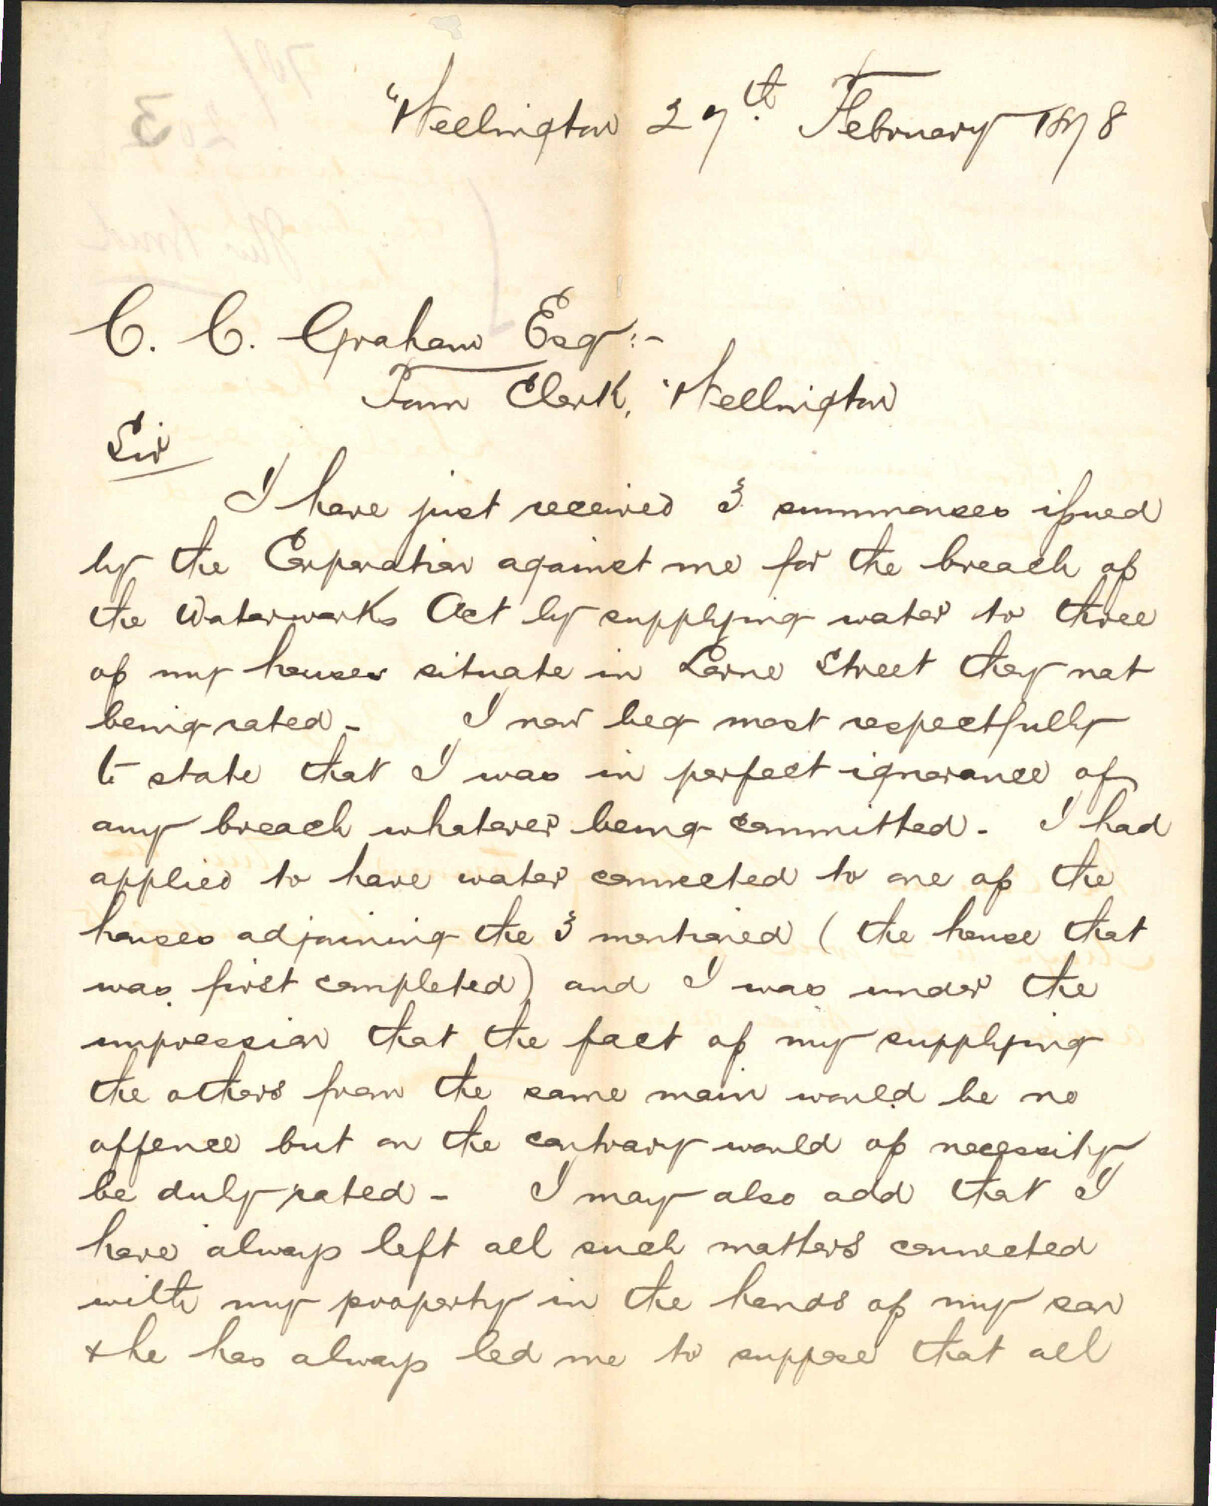 Wellington 27th February 1878
C. C. Graham Esq:-
Town Clerk, Wellington
Sir
I have just received 3 summonses issued
by the Corporation against me for the breach of
the Waterworks Act by supplying water to three
of my houses situate in Lorne Street they not
being rated - I now beg most respectfully
to state that I was in perfect ignorance of
any breach whatever being committed. I had
applied to have water connected to one of the
houses adjoining the 3 mentioned (the house that
was first completed) and I was under the
impression that the fact of my supplying
the others from the same main would be no
offence but on the contrary would of necessity
be duly rated - I may also add that I
have always left all such matters connected
with my property in the hands of my son
& he has always led me to suppose that all